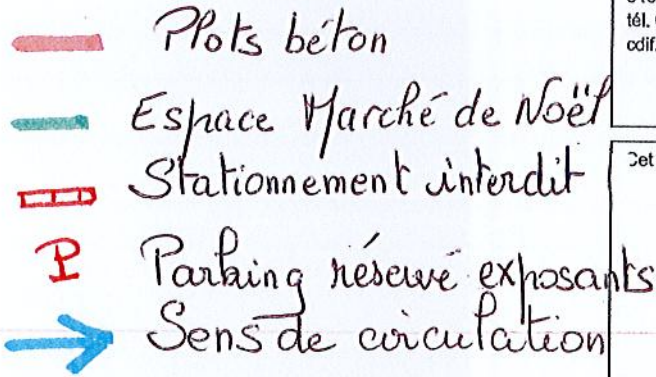 Plots béton
tél.
cdif.
Espace Marché de Noël
Stationnement interdit
Cet
P Parking réservé exposants
Sens de circulation